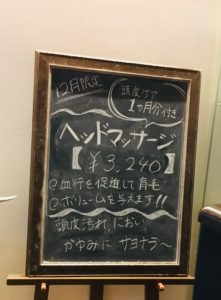 12月限定
頭皮ケア
1ヵ月分付き
ヘッドマッサージ
【¥3,240】
◎血行を促進して育毛
◎ボリュームを与えます!!
頭皮汚れ、におい、
かゆみに サヨナラ〜